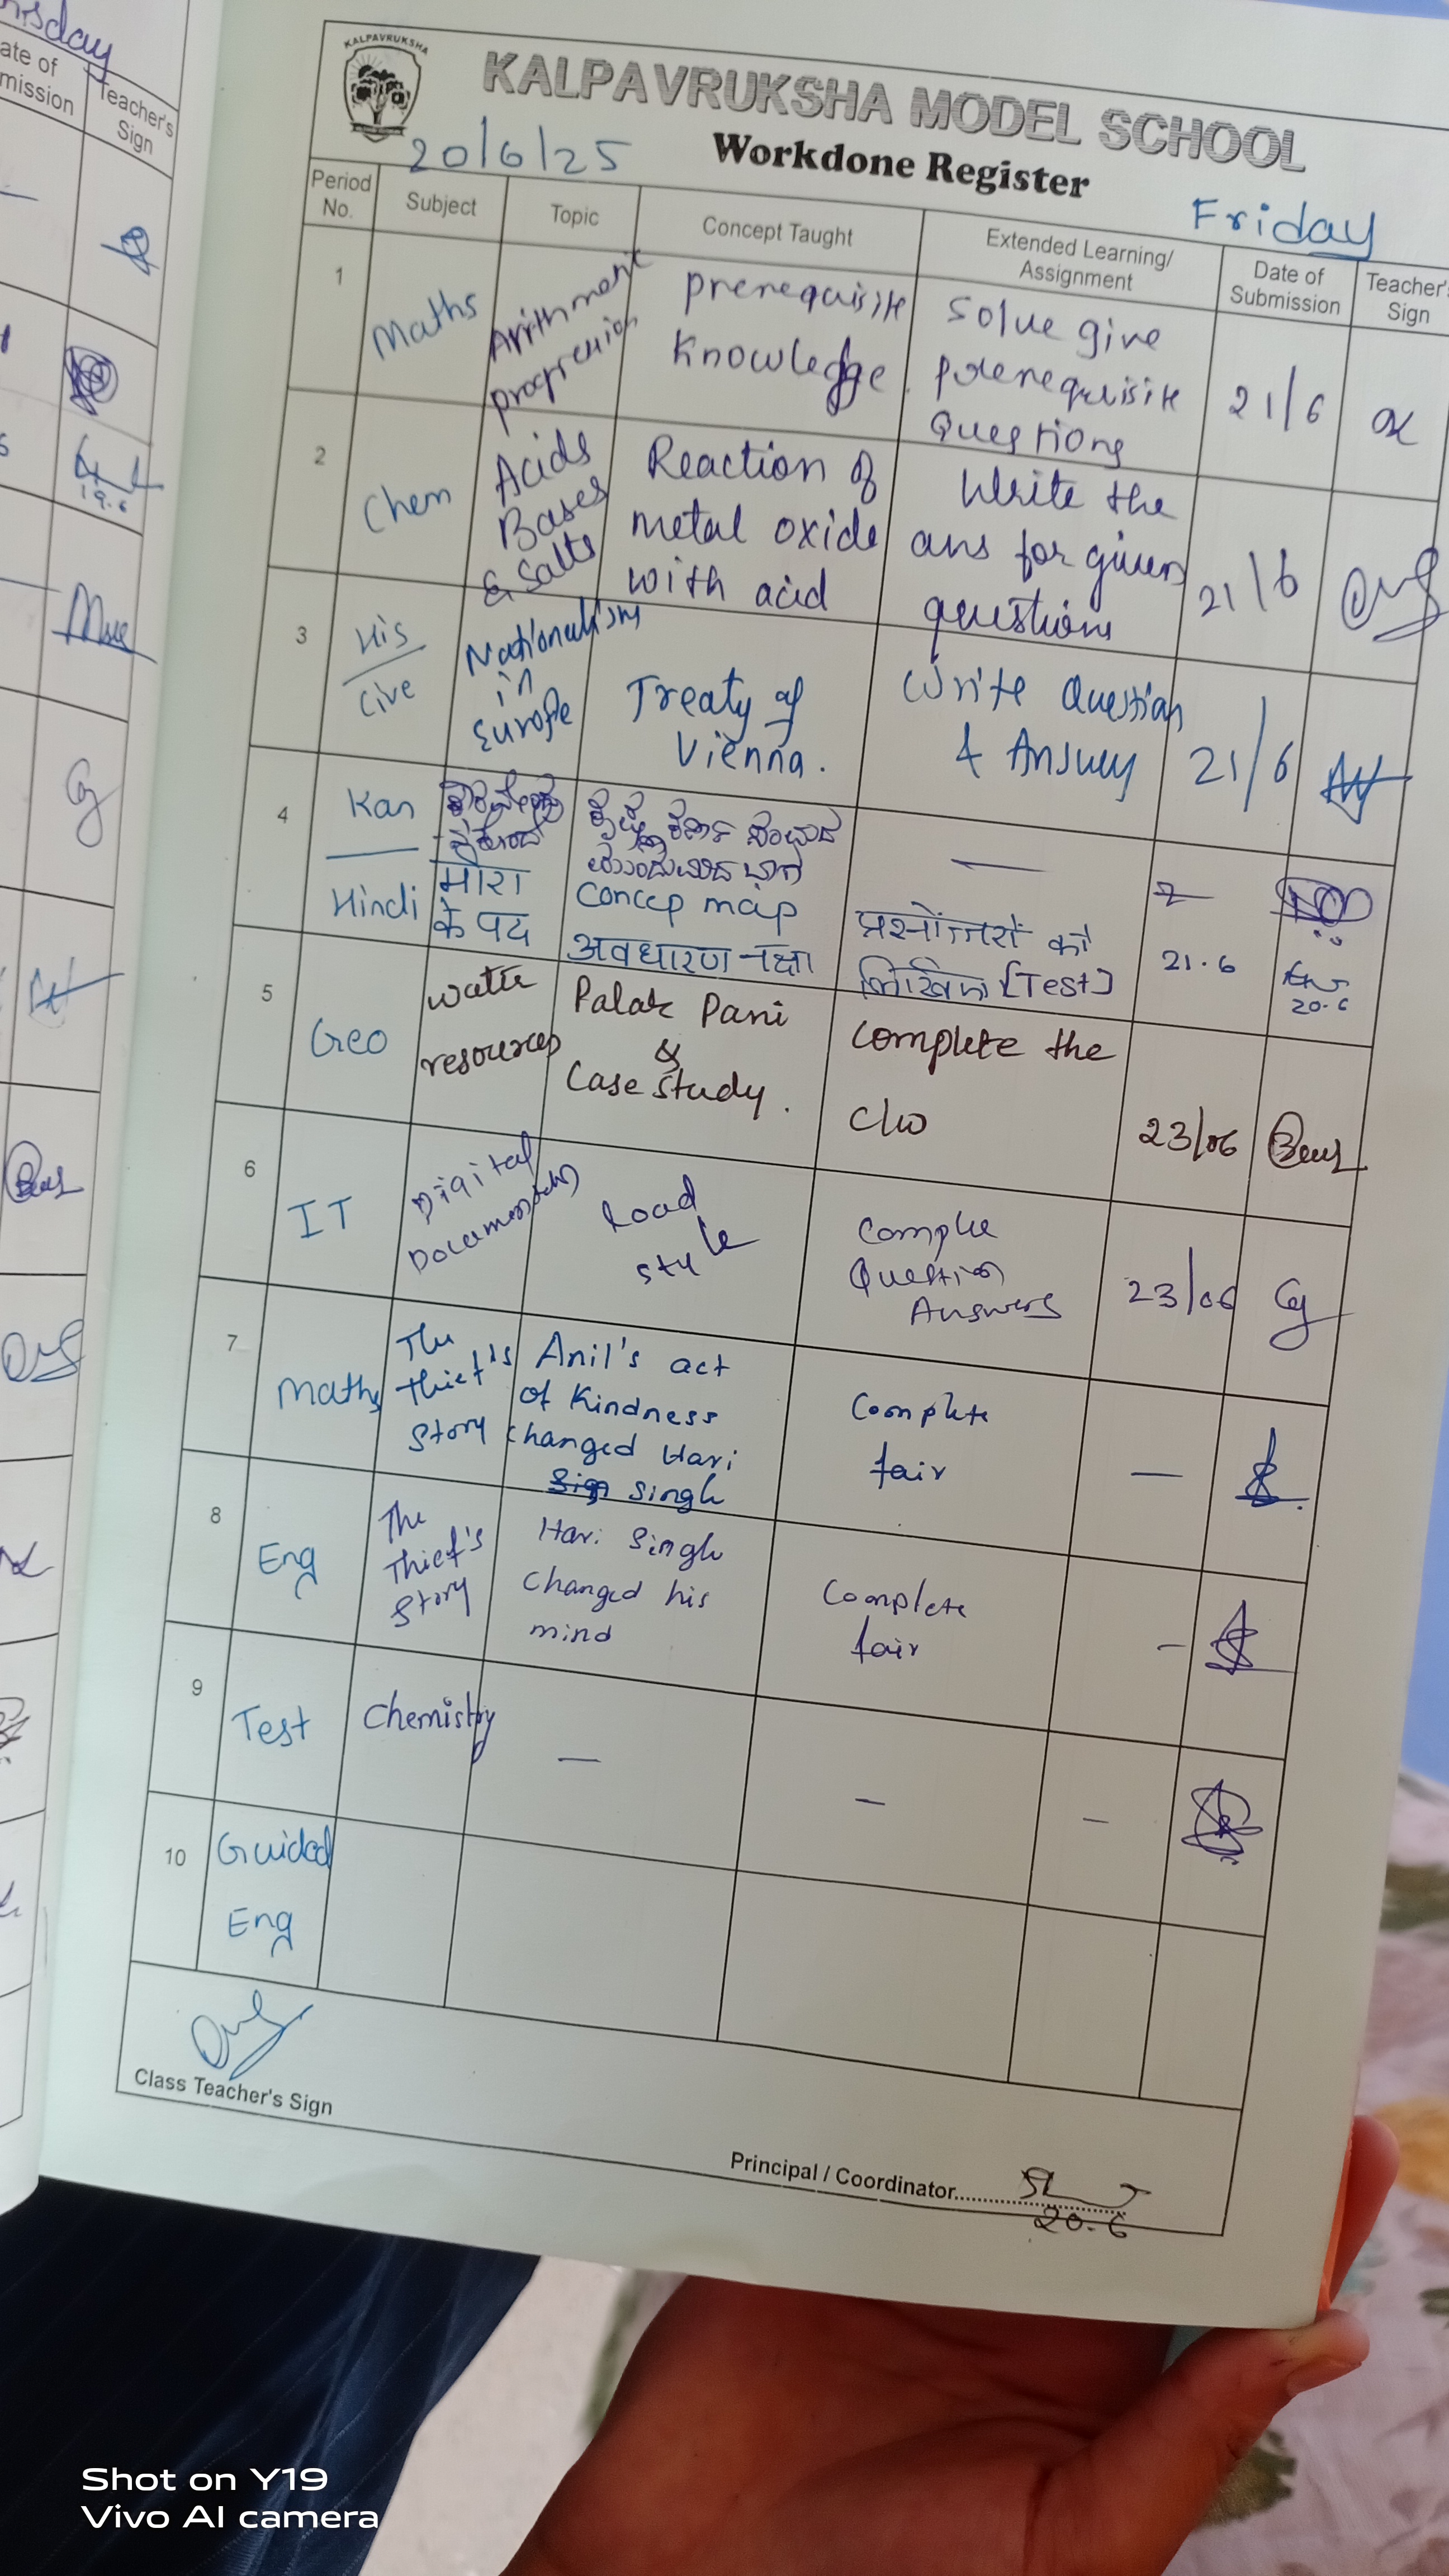 KALPAVRUKSHA
KALPAVRUKSHA MODEL SCHOOL
20/6/25
Workdone Register
Friday
Period No.
Subject
Topic
Concept Taught
Extended Learning/ Assignment
Date of Submission
Teacher's Sign
1
Maths
prerequisite
Knowledge.
Solve give
prerequisite
Questions
21/6
2
Chem
Acids
Bases
& Salts
Reaction of
metal oxide
with acid
Write the
ans for given
questions
21/6
3
His
Cive
Nationalism
in
Europe
Treaty of
Vienna.
Write Question
& Answer
21/6
4
Kan
Hindi
मीरा
के पद
Concep map
[Test]
21.6
20.6
5
Geo
water
resources
Palar Pani
&
Case study.
Complete the
C/W
23/06
6
IT
Digital
style
Question
Answers
23/06
7
Maths
The
Thief's
Story
Anil's act
of Kindness
changed Hari
Singh
Complete
fair
8
Eng
The
Thief's
Story
Hari Singh
changed his
mind
Complete
fair
9
Test
Chemistry
10
Guided
Eng
Class Teacher's Sign
Principal / Coordinator
20.6
ate of
mission
Teacher's
Sign
19.6
Shot on Y19
Vivo AI camera